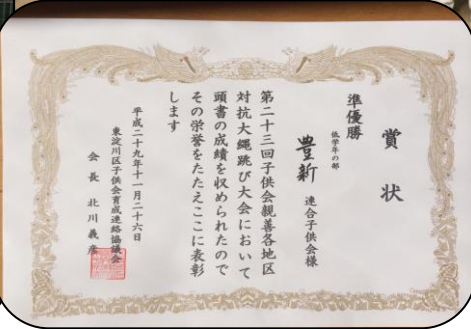 賞状
準優勝
低学年の部
豊新 連合子供会様
第二十三回子供会親善各地区
対抗大縄跳び大会において
頭書の成績を収められたので
その栄誉をたたえここに表彰
します
平成二十九年十一月二十六日
東淀川区子供会育成連絡協議会
会長 北川義彦